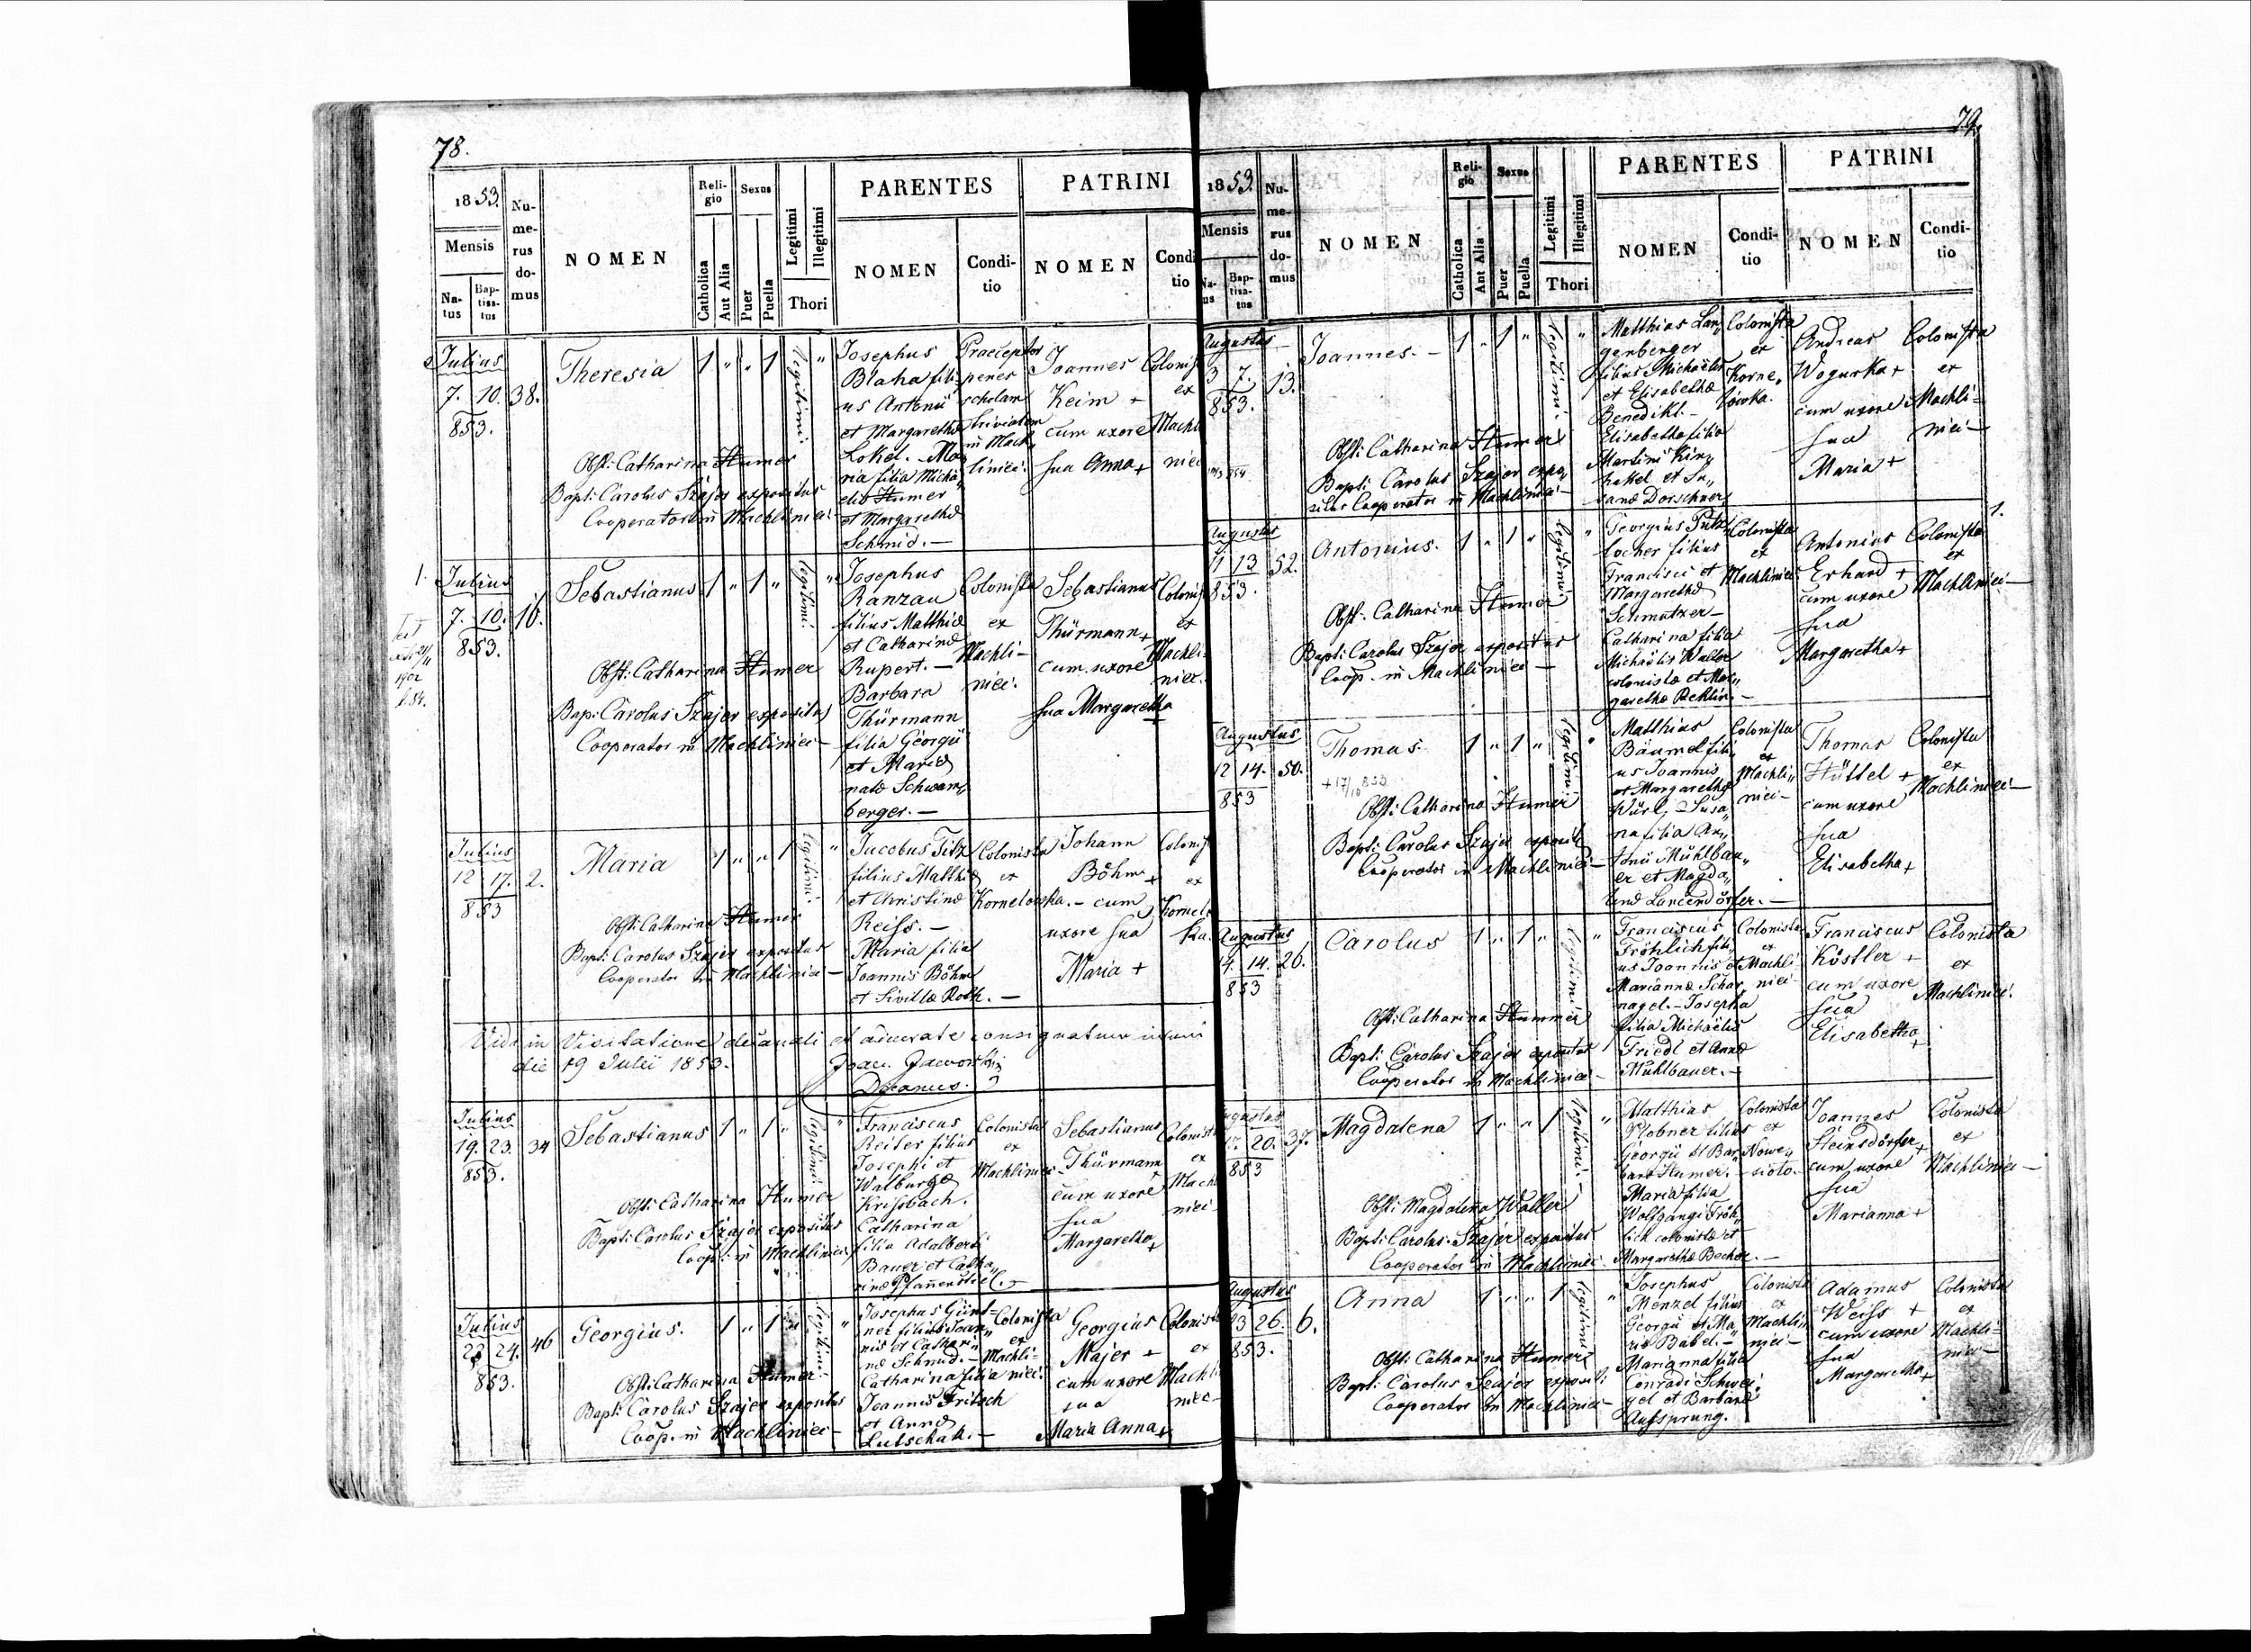 78.
1853.
Mensis
Na-
tus
Bap-
tisa-
tus
Nu-
me-
rus
do-
mus
NOMEN
Reli-
gio
Catholica
Aut Alia
Sexus
Puer
Puella
Legitimi
Illegitimi
Thori
PARENTES
NOMEN
Condi-
tio
PATRINI
NOMEN
Condi
tio
Julius
7. 10. 38.
853.
Theresia
1 " " 1
Legitimi
"
Obst: Catharina Stumer
Bapt: Carolus Szajer expositus
Cooperator in Machliniec
Josephus
Blaha fili-
us Antonii
et Margarethæ
Lokel. - Ma-
ria filia Micha-
elis Stumer
et Margarethæ
Schmid. -
Praeceptor
penes
scholam
trivialem
in Mach
liniec.
Joannes
Keim +
cum uxore
sua Anna +
Colonis
ex
Machli
niec
1.
Julius
7. 10. 16.
853.
1902
Sebastianus
1 " 1 "
legitimi
"
Obst: Catharina Stumer
Bap: Carolus Szajer expositus
Cooperator in Machliniec -
Josephus
Ranzau
filius Matthiæ
et Catharinæ
Rupert. -
Barbara
Thürmann
filia Georgii
et Mariæ
natæ Schwam,,
berger. -
Colonista
ex
Machli-
niec.
Sebastianus
Thürmann +
cum uxore
sua Margaretha
Colonis
ex
Machli-
niec.
Julius
12 17. 2.
853
Maria
1 " " 1
legitimi
"
Obst: Catharina Stumer
Bapt: Carolus Szajer expositus
Cooperator in Machliniec -
Jacobus Titz
filius Matthiæ
et Christinæ
Reiss. -
Maria filia
Joannis Böhm
et Sivillæ Roth. -
Colonista
ex
Kornelowka. -
Johann
Böhm +
cum
uxore sua
Maria +
Colonis
ex
Kornelo
ka.
Vidi in Visitatione decanali et accurate consignatum inveni
die 19 Julii 1853.
Joac. Jaworski
Decanus.
Julius
19. 23. 34
853.
Sebastianus
1 " 1 "
legitimi
"
Obst: Catharina Stumer
Bapt: Carolus Szajer expositus
Coop: in Machliniec
Franciscus
Reiter filius
Josephi et
Walburgæ
Krissbach.
Catharina
filia Adalberti
Bauer et Catha,,
rinæ Pfannenstiel. -
Colonista
ex
Machliniec
Sebastianus
Thürmann
cum uxore
sua
Margaretha +
Colonist
ex
Mach
niec
Julius
23 24. 46
853.
Georgius.
1 " 1 "
legitimi
"
Obst: Catharina Stumer
Bapt: Carolus Szajer expositus
Coop. in Machliniec -
Josephus Günt-
ner filius Joan,,
nis et Cathari,,
næ Schmid. -
Catharina filia
Joannis Fritsch
et Annæ
Lutschak. -
Colonista
ex
Machli-
niec.
Georgius
Majer +
cum uxore
sua
Maria Anna +
Colonist
ex
Machli
niec -
79.
1853.
Mensis
Na-
us
Bap-
tisa-
tus
Nu-
me-
rus
do-
mus
NOMEN
Reli-
gio
Catholica
Aut Alia
Sexus
Puer
Puella
Legitimi
Illegitimi
Thori
PARENTES
NOMEN
Condi-
tio
PATRINI
NOMEN
Condi-
tio
Augustus
3 7. 13.
853.
Joannes. -
1 " 1 "
legitimi.
"
Obst: Catharina Stumer
Bapt: Carolus Szajer expo,,
situs Cooperator in Machliniec -
Matthias Lan,,
genberger
filius Michaelis
et Elisabethæ
Benedikt. -
Elisabetha filia
Martini Kin,,
hakel et Su,,
sanæ Dorschner
Colonista
ex
Korne,,
lowka.
Andreas
Wogurka +
cum uxore
sua
Maria +
Colonista
ex
Machli-
niec -
1.
Augustus
11 13 52.
853.
Antonius.
1 " 1 "
legitimi
"
Obst: Catharina Stumer
Bapt: Carolus Szajer expositus
Coop. in Machliniec -
Georgius Putz,,
locher filius
Francisci et
Margarethæ
Schmutzer -
Catharina filia
Michaelis Waller
colonistæ et Mar,,
garethæ Recklin. -
Colonista
ex
Machliniec
Antonius
Erhard +
cum uxore
sua
Margaretha +
Colonista
ex
Machliniec -
Augustus
12 14. 50.
853
Thomas.
+ 17/10 853
1 " 1 "
legitimi
"
Obst: Catharina Stumer
Bapt: Carolus Szajer exposit
Cooperator in Machliniec -
Matthias
Bäumel fili-
us Joannis
et Margarethæ
Würfl - Susa,,
na filia An,,
tonii Mühlbau,,
er et Magda,,
lenæ Lanzendörfer. -
Colonista
ex
Machli,,
niec -
Thomas
Hüttel +
cum uxore
sua
Elisabetha +
Colonista
ex
Machliniec -
Augustus
14. 14. 26.
853
Carolus
1 " 1 "
legitimi
"
Obst: Catharina Stummer
Bapt: Carolus Szajer expositus
Cooperator in Machliniec -
Franciscus
Fröhlich fili-
us Joannis et
Marianæ Schar
nagel. - Josepha
filia Michaelis
Friedl et Annæ
Mühlbauer. -
Colonista
ex
Machli-
niec -
Franciscus
Köstler +
cum uxore
sua
Elisabetha +
Colonista
ex
Machliniec.
ugustus
17. 20. 37.
853
Magdalena
1 " " 1
legitimi -
"
Obst: Magdalena Waller
Bapt: Carolus Szajer expositus
Cooperator in Machliniec
Matthias
Plobner filius
Georgii et Bar,,
baræ Stumer. -
Maria filia
Wolfgangi Fröh,,
lich colonistæ et
Margarethæ Becher. -
Colonista
ex
Nowe,,
sioło. -
Joannes
Steinsdörfer +
cum uxore
sua
Marianna +
Colonista
ex
Machliniec -
Augustus
23 26. 6.
853.
Anna
1 " " 1
legitimi
"
Obst: Catharina Stumer
Bapt: Carolus Szajer exposit
Cooperator in Machliniec -
Josephus
Menzel filius
Georgii et Ma,,
riæ Babel. -
Marianna filia
Conradi Schwei,,
gel et Barbaræ
Aufsprung.
Colonista
ex
Machli,,
niec -
Adamus
Weiss +
cum uxore
sua
Margaretha +
Colonista
ex
Machli-
niec -